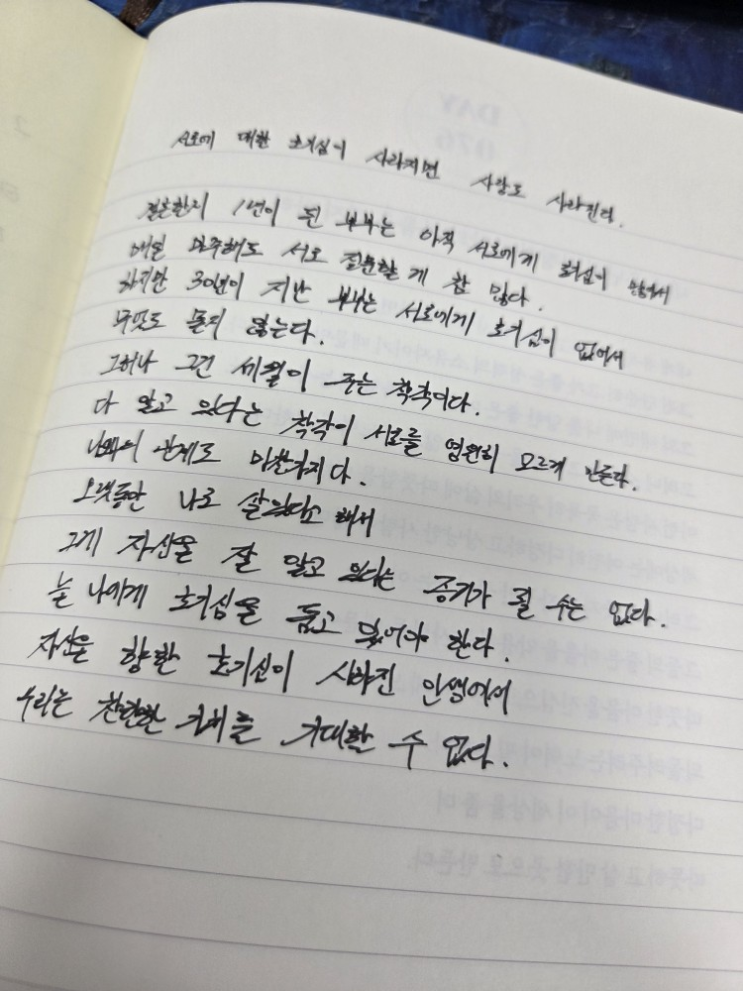 서로에 대한 호기심이 사라지면 사랑도 사라진다.
결혼한지 1년이 된 부부는 아직 서로에게 호기심이 많아서
매일 마주해도 서로 질문할 게 참 많다.
하지만 30년이 지난 부부는 서로에게 호기심이 없어서
무엇도 묻지 않는다.
그러나 그건 세월이 주는 착각이다.
다 알고 있다는 착각이 서로를 영원히 모르게 만든다.
나와의 관계도 마찬가지다.
오랫동안 나로 살았다고 해서
그게 자신을 잘 알고 있다는 증거가 될 수는 없다.
늘 나에게 호기심을 품고 있어야 한다.
자신을 향한 호기심이 사라진 인생에서
우리는 찬란한 가치를 기대할 수 없다.
DAY
076